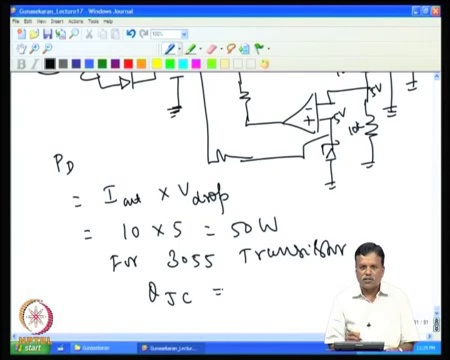 Gunasekaran_Lecture17 - Windows Journal
File Edit View Insert Actions Tools Help
100%
B I
- 5V
+ 5V
10k
P_D
= I_out × V_drop
= 10 × 5 = 50W
For 3055 Transistor
θ_JC =
NPTEL
start Gunasekaran Gunasekaran_Lectu...